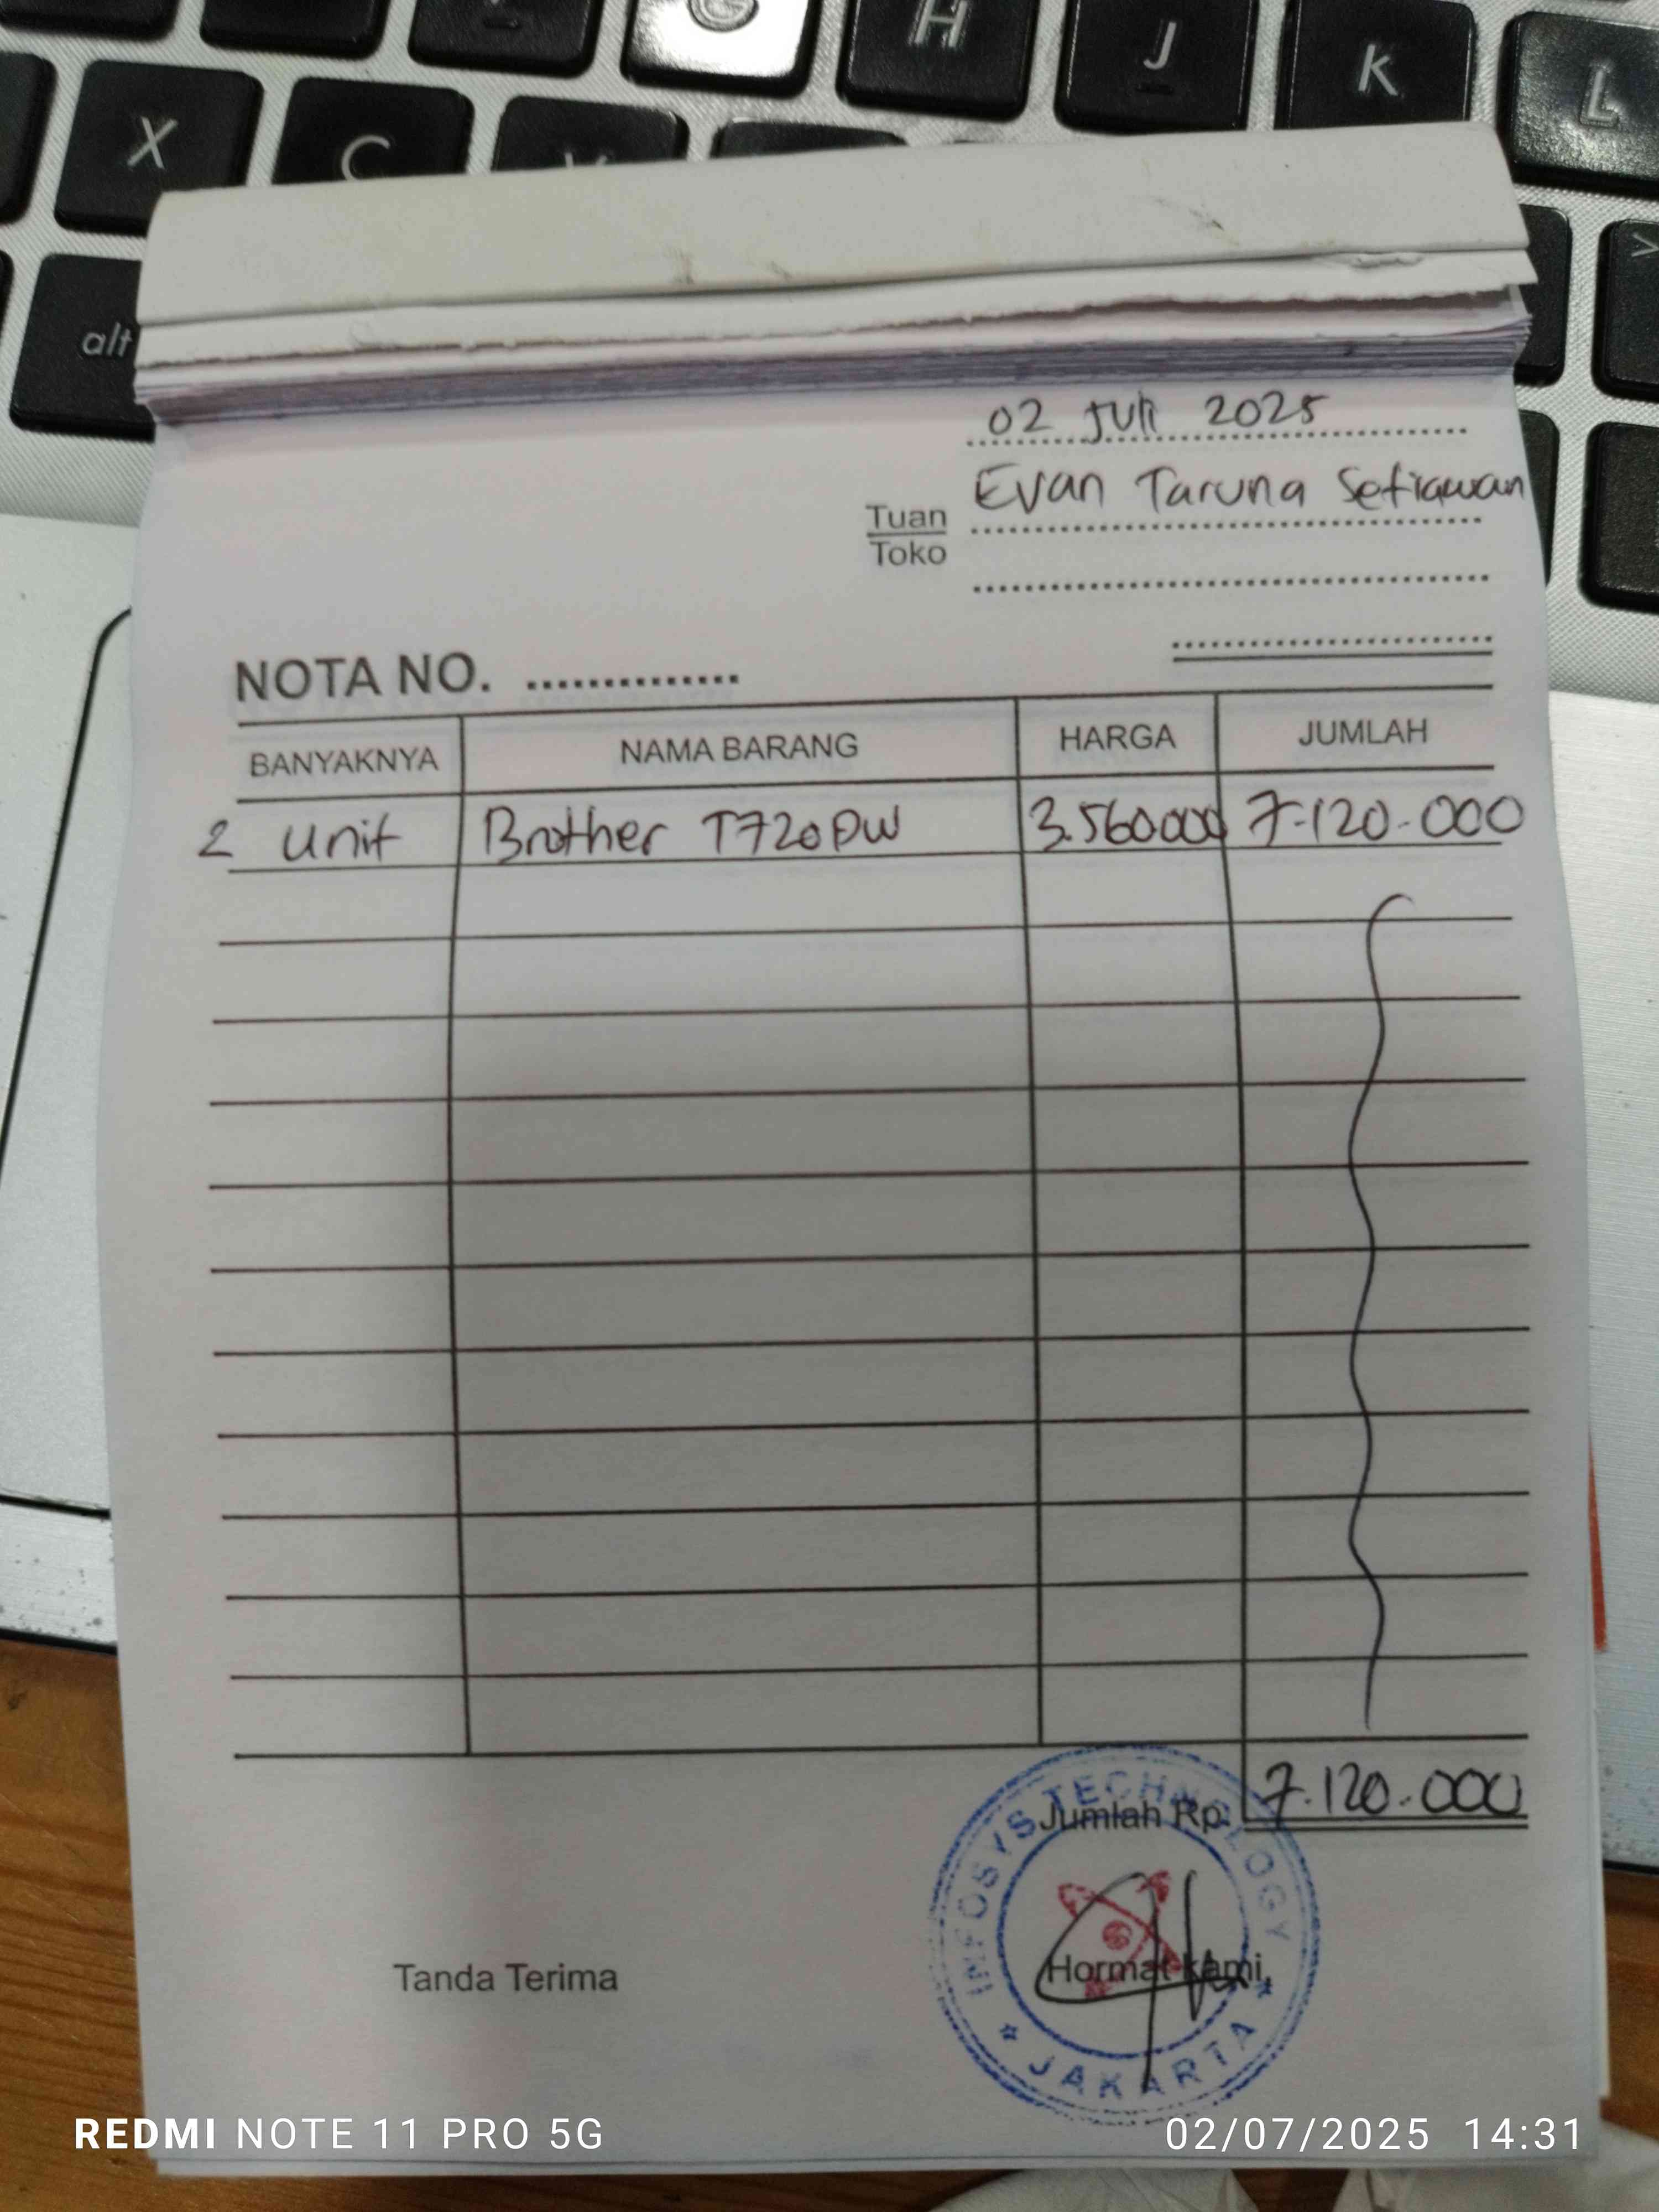 G H J K L
X C V
alt >
02 Juli 2025
Tuan Evan Taruna Setiawan
Toko
NOTA NO. ...............
BANYAKNYA NAMA BARANG HARGA JUMLAH
2 Unit Brother T720DW 3.560000 7.120.000
Jumlah Rp. 7.120.000
Tanda Terima Hormat kami,
INFOSYS TECHNOLOGY
JAKARTA
REDMI NOTE 11 PRO 5G 02/07/2025 14:31